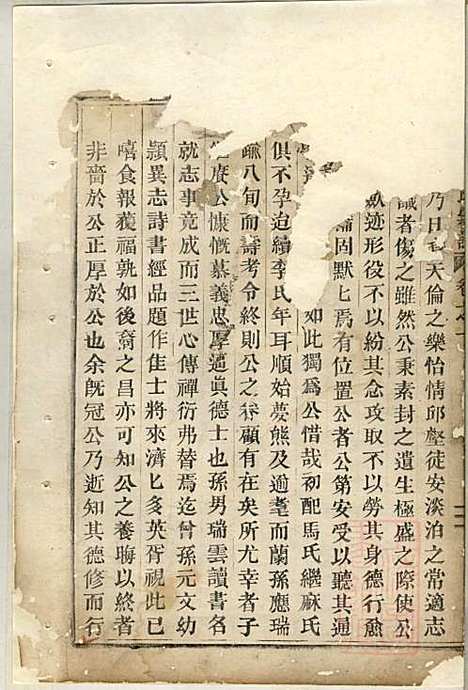 乃日天倫之樂怡情邱壑徒安淡泊之常適志
識者傷之雖然公秉素封之遺生極盛之際使公
斂迹形役不以紛其念攻取不以勞其身德行愈
固默匕焉有位置公者公第安受以聽其通
如此獨爲公惜哉初配馬氏繼麻氏
俱不孕迨續李氏年耳順始夢熊及逾耄而蘭孫應瑞
八旬而壽考令終則公之顧有在矣所尤幸者子
度公慷慨慕義忠厚逼眞德士也孫男瑞雲讀書名
就志事竟成而三世心傳禪衍弗替焉迄曾孫元文幼
頴異志詩書經品題作佳士將來濟匕多英胥視此已
嘻食報獲福孰如後裔之昌亦可知公之養晦以終者
非嗇於公正厚於公也余旣冠公乃逝知其德修而行